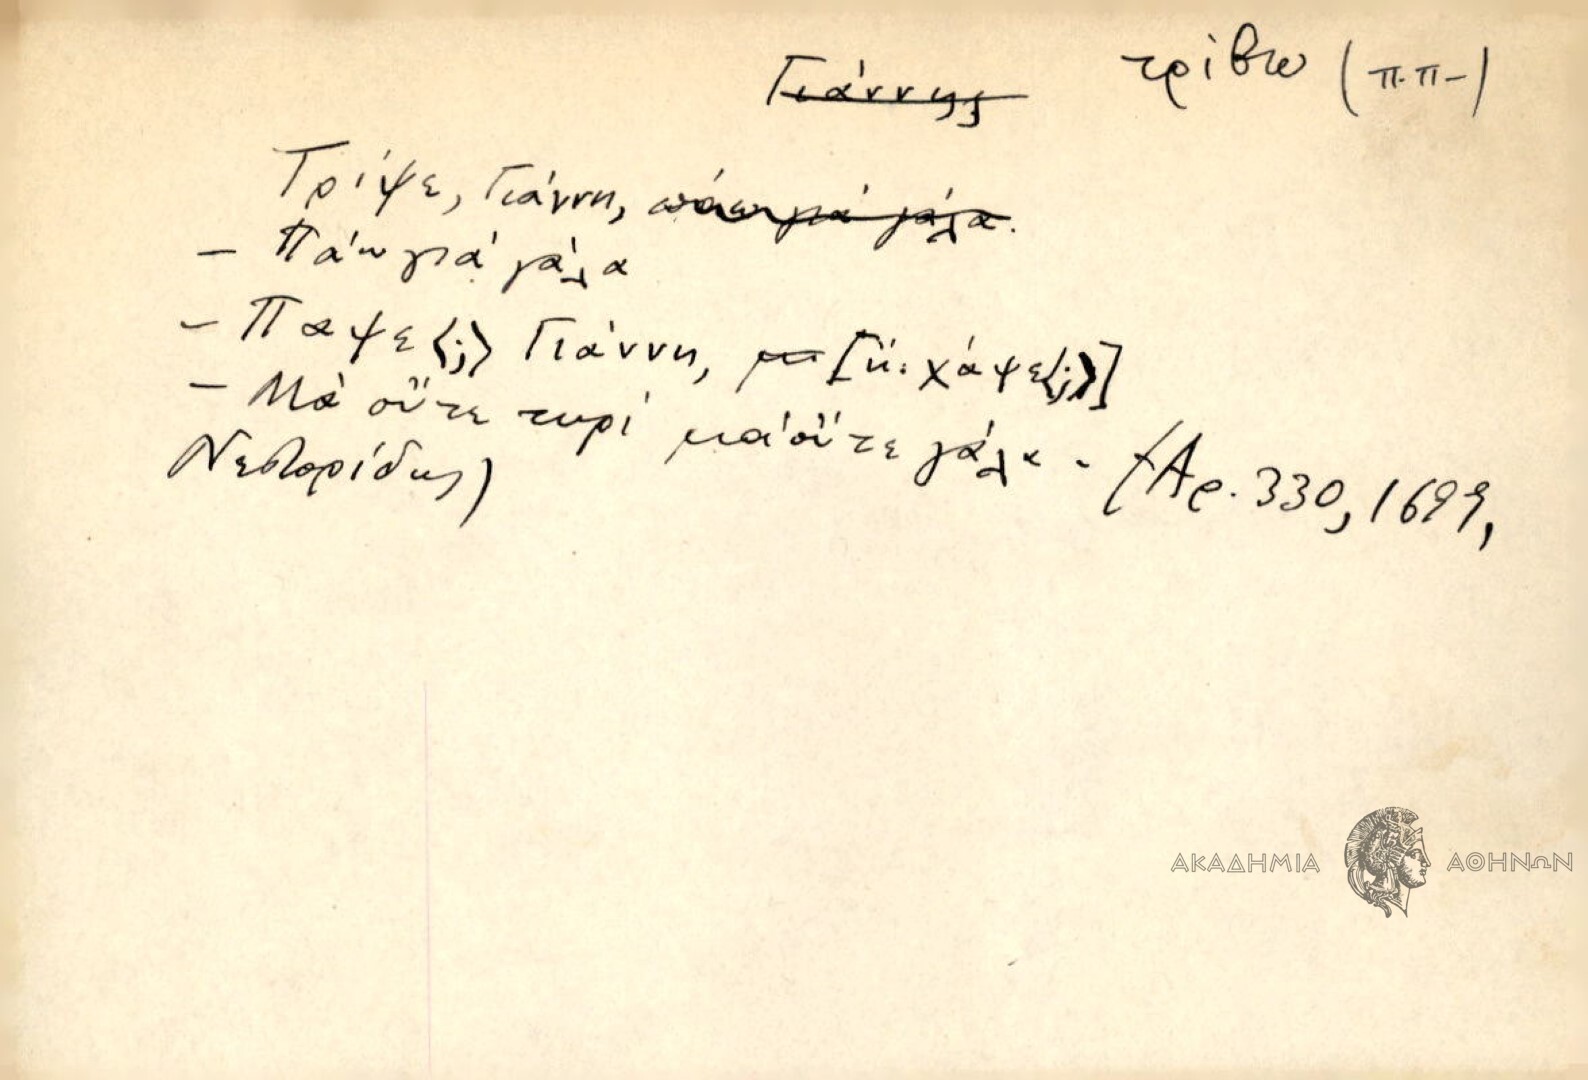 Γιάννης τρίβω (π.π-)
Τρίψε, Γιάννη, πάω γιά γάλα.
- Πάω γιά γάλα
- Παψε<;> Γιάννη, [ἤ: χάψε<;>]
- Μὰ οὔτε τυρί μά οὔτε γάλα. (Αρ. 330, 1699,
Νεστορίδης)
ΑΚΑΔΗΜΙΑ ΑΘΗΝΩΝ